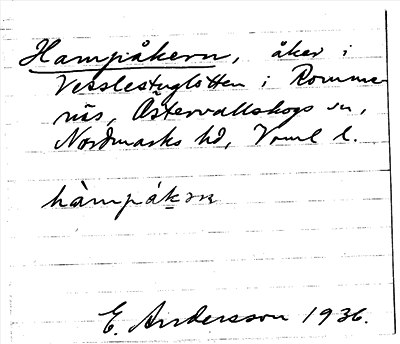 Hampåkern, åker i
Vesslestuglotten i Romme-
näs, Östervallskogs sn,
Nordmarks hd, Vrml l.
hàmpåkɴ
E. Andersson 1936.